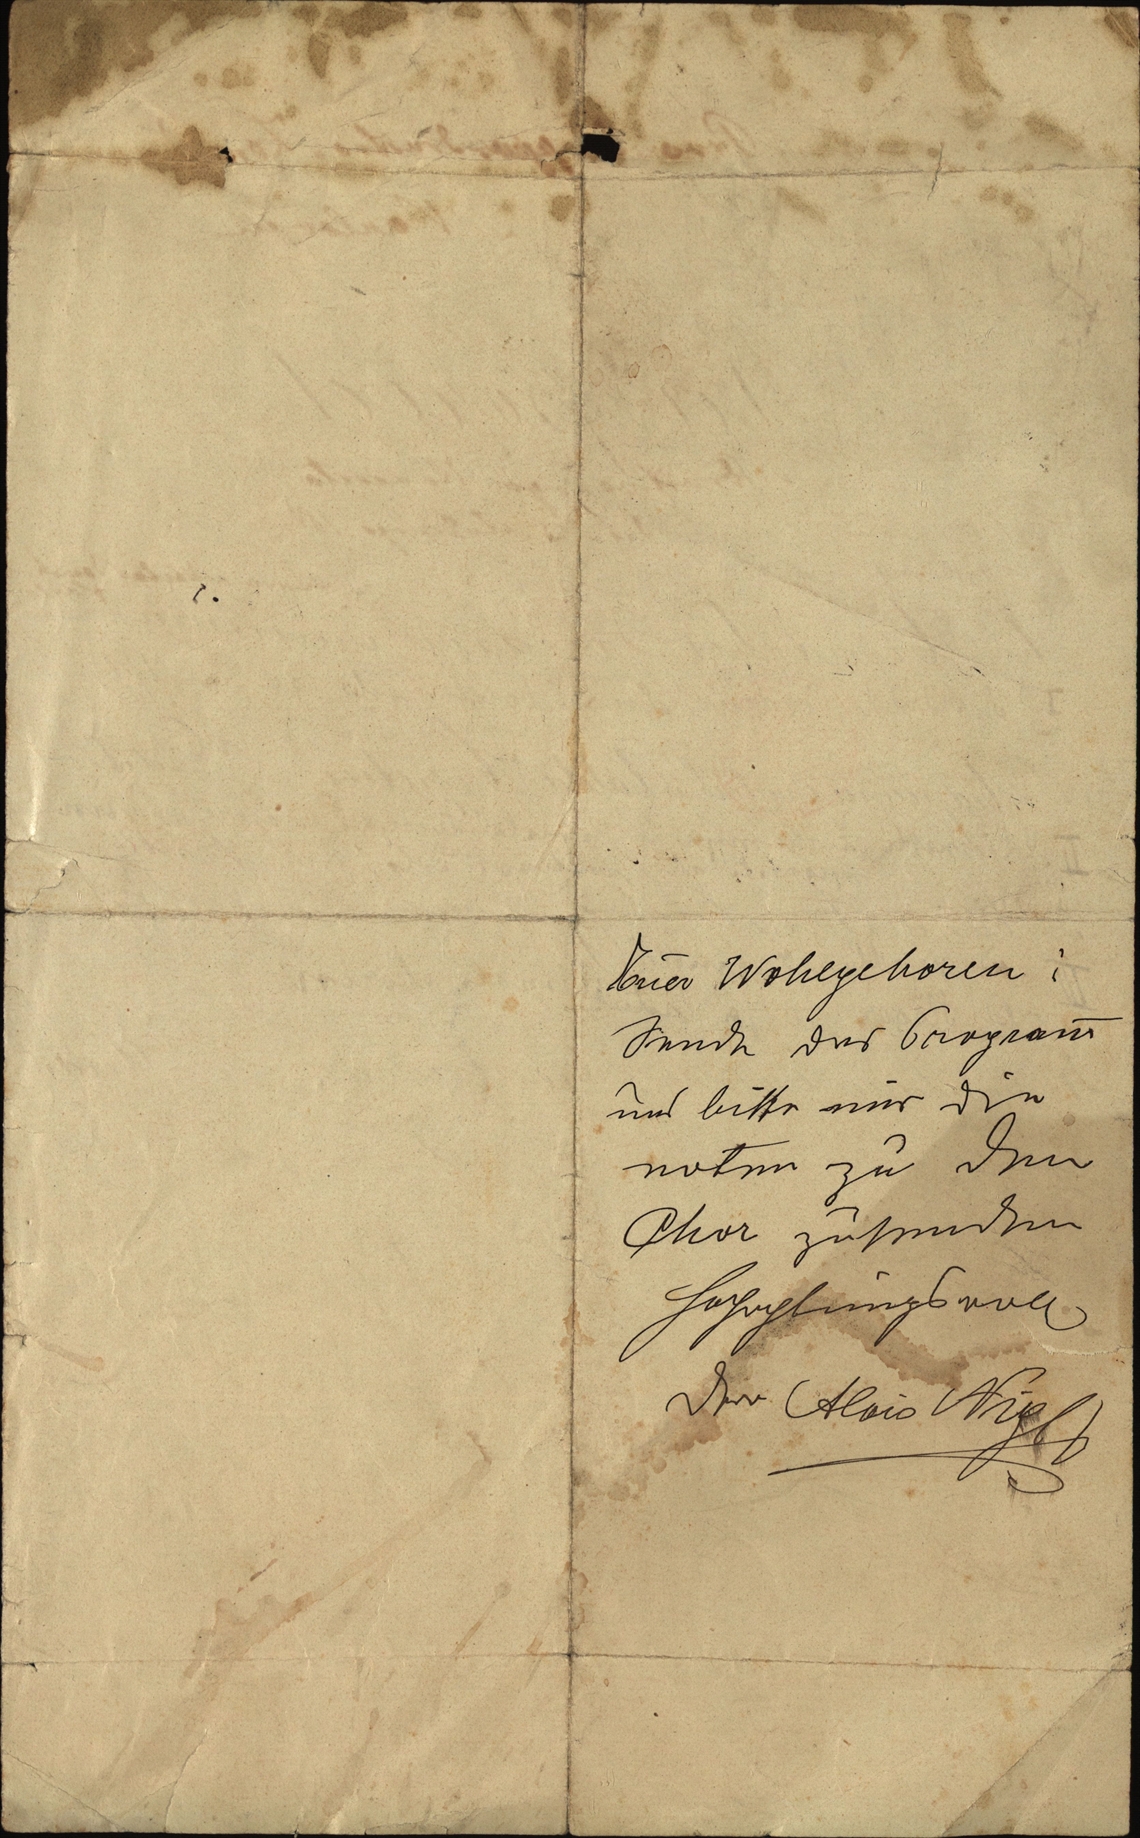 Euer Wohlgeboren!
Sende das Program̅
und bitte mir die
noten zu den
Chor zusenden
Hochachtungsvoll
Der Alois Nigl